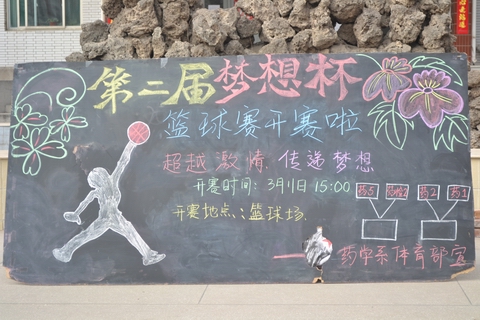 第二届梦想杯
篮球赛开赛啦
超越激情 传递梦想
开赛时间:3月1日 15:00
药5 药2 药1
开赛地点:篮球场
药学系体育部宣